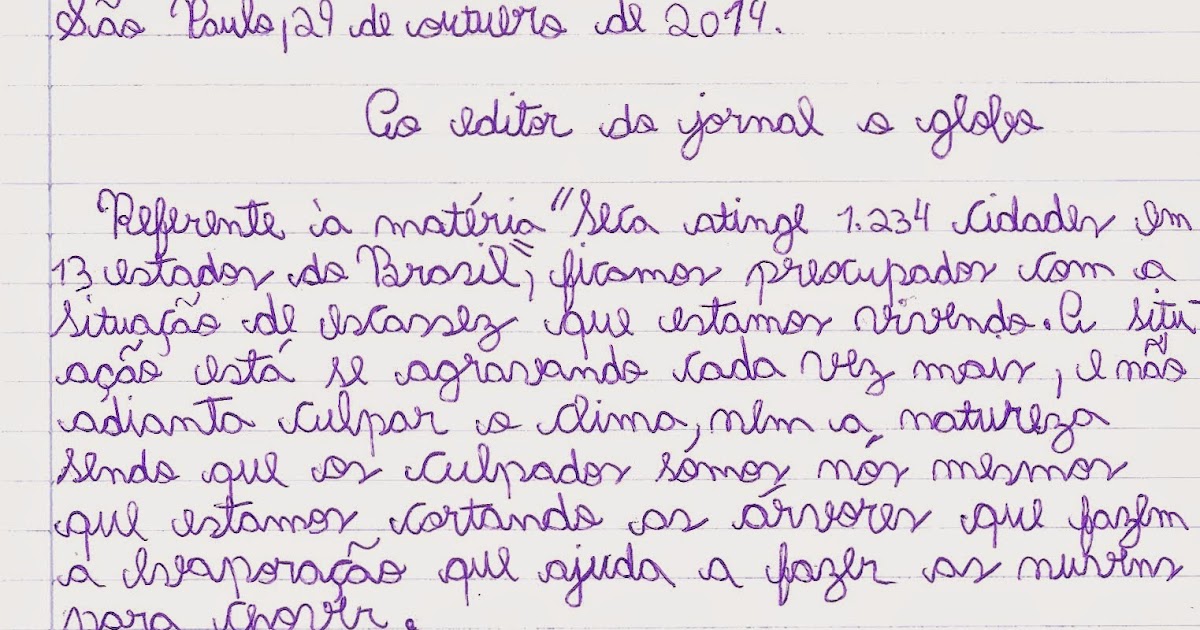 São Paulo, 29 de outubro de 2014.
Ao editor do jornal o globo
Referente à matéria "Seca atinge 1.234 cidades em
13 estados do Brasil", ficamos preocupados com a
situação de escassez que estamos vivendo. A situ
ação está se agravando cada vez mais, e não
adianta culpar o clima, nem a natureza
sendo que os culpados sómos nós mesmos
que estamos cortando as árvores que fazem
a evaporação que ajuda a fazer as nuvens
para chover.